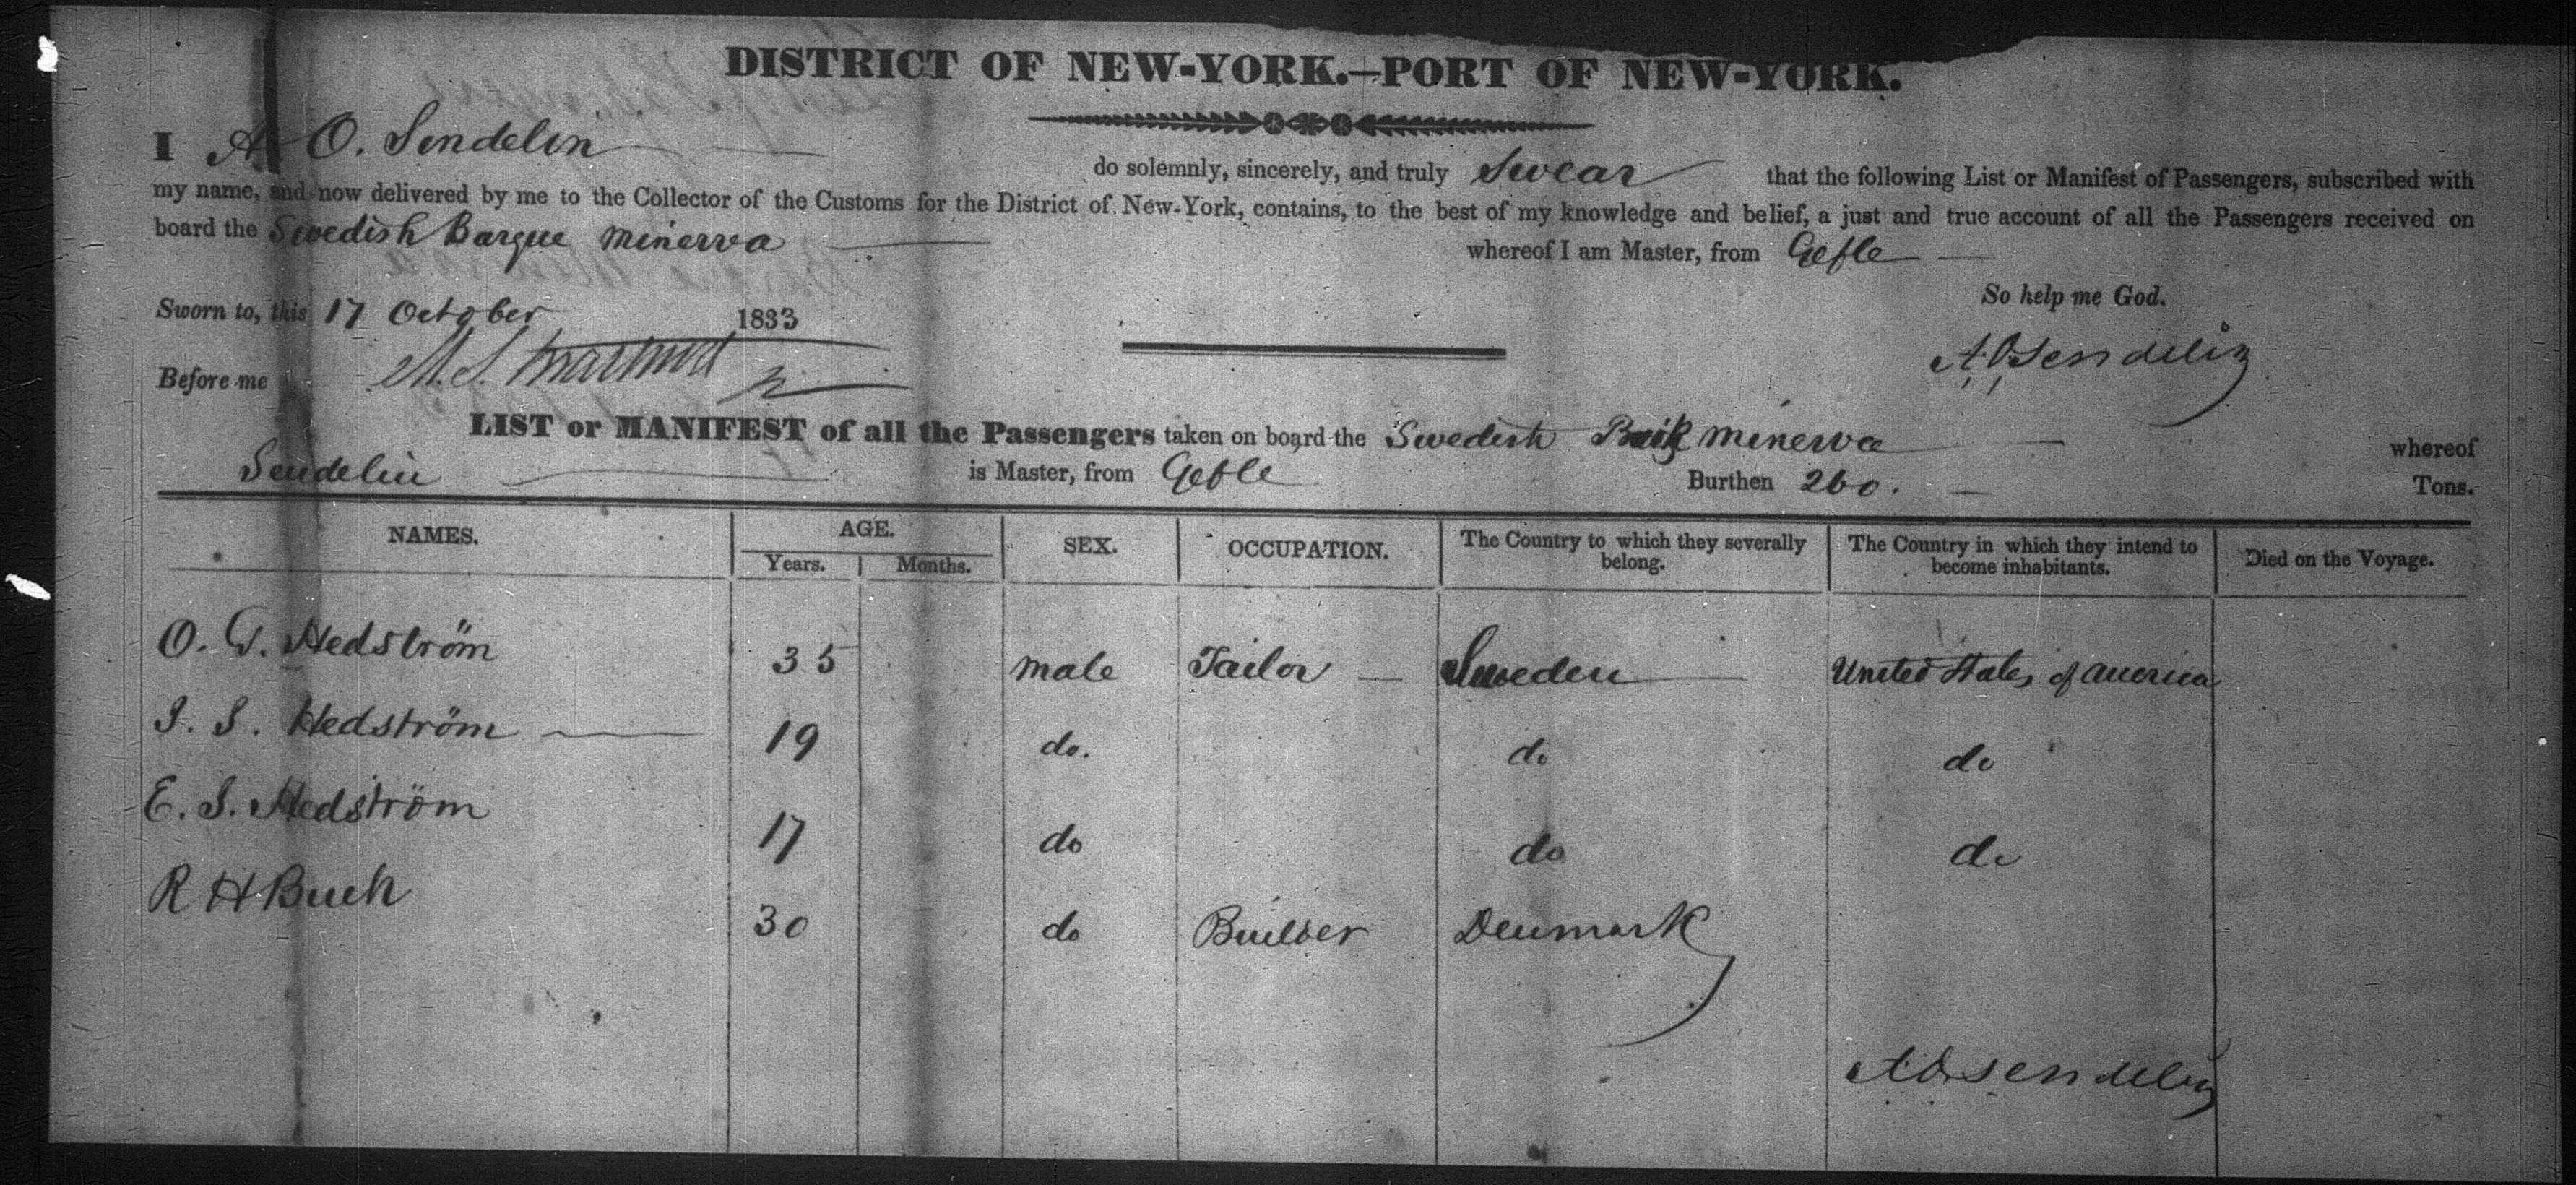 DISTRICT OF NEW-YORK.—PORT OF NEW-YORK.
I A. O. Sendelin do solemnly, sincerely, and truly Swear that the following List or Manifest of Passengers, subscribed with
my name, and now delivered by me to the Collector of the Customs for the District of New-York, contains, to the best of my knowledge and belief, a just and true account of all the Passengers received on
board the Swedish Barque Minerva whereof I am Master, from Gefle
So help me God.
Sworn to, this 17 October 1833
A. O. Sendelin
Before me
LIST or MANIFEST of all the Passengers taken on board the Swedish Minerva whereof
Sendelin is Master, from Gefle Burthen 260. Tons.
NAMES. AGE. SEX. OCCUPATION. The Country to which they severally belong. The Country in which they intend to become inhabitants. Died on the Voyage.
Years. Months.
O. G. Hedström 35 male Tailor Sweden United States of America
I. I. Hedström 19 do. do do
E. I. Hedström 17 do do do
R H Buch 30 do Builder Denmark
A O Sendelin